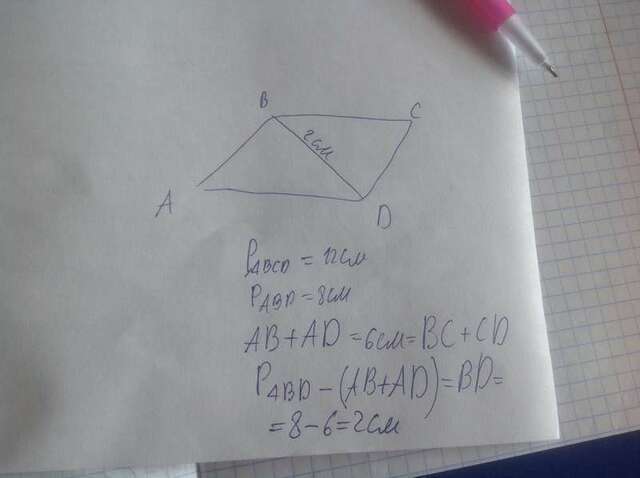 B
C
2см
A
D
P ABCD = 12см
P ABD = 8см
AB + AD = 6см = BC + CD
P ABD - (AB+AD) = BD =
= 8 - 6 = 2см